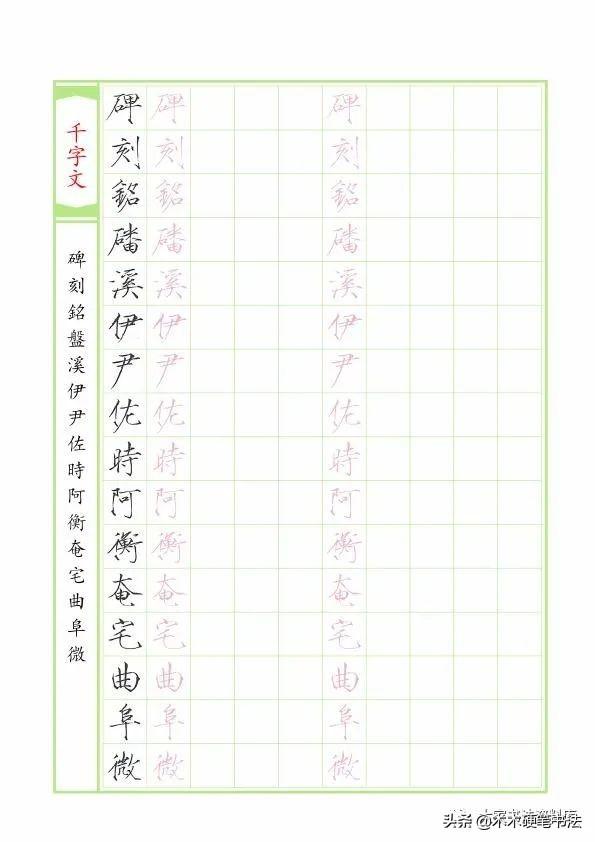 千字文
碑刻銘盤溪伊尹佐時阿衡奄宅曲阜微
碑刻銘磻溪伊尹佐時阿衡奄宅曲阜微
碑刻銘磻溪伊尹佐時阿衡奄宅曲阜微
碑刻銘磻溪伊尹佐時阿衡奄宅曲阜微
头条 @木木硬笔书法